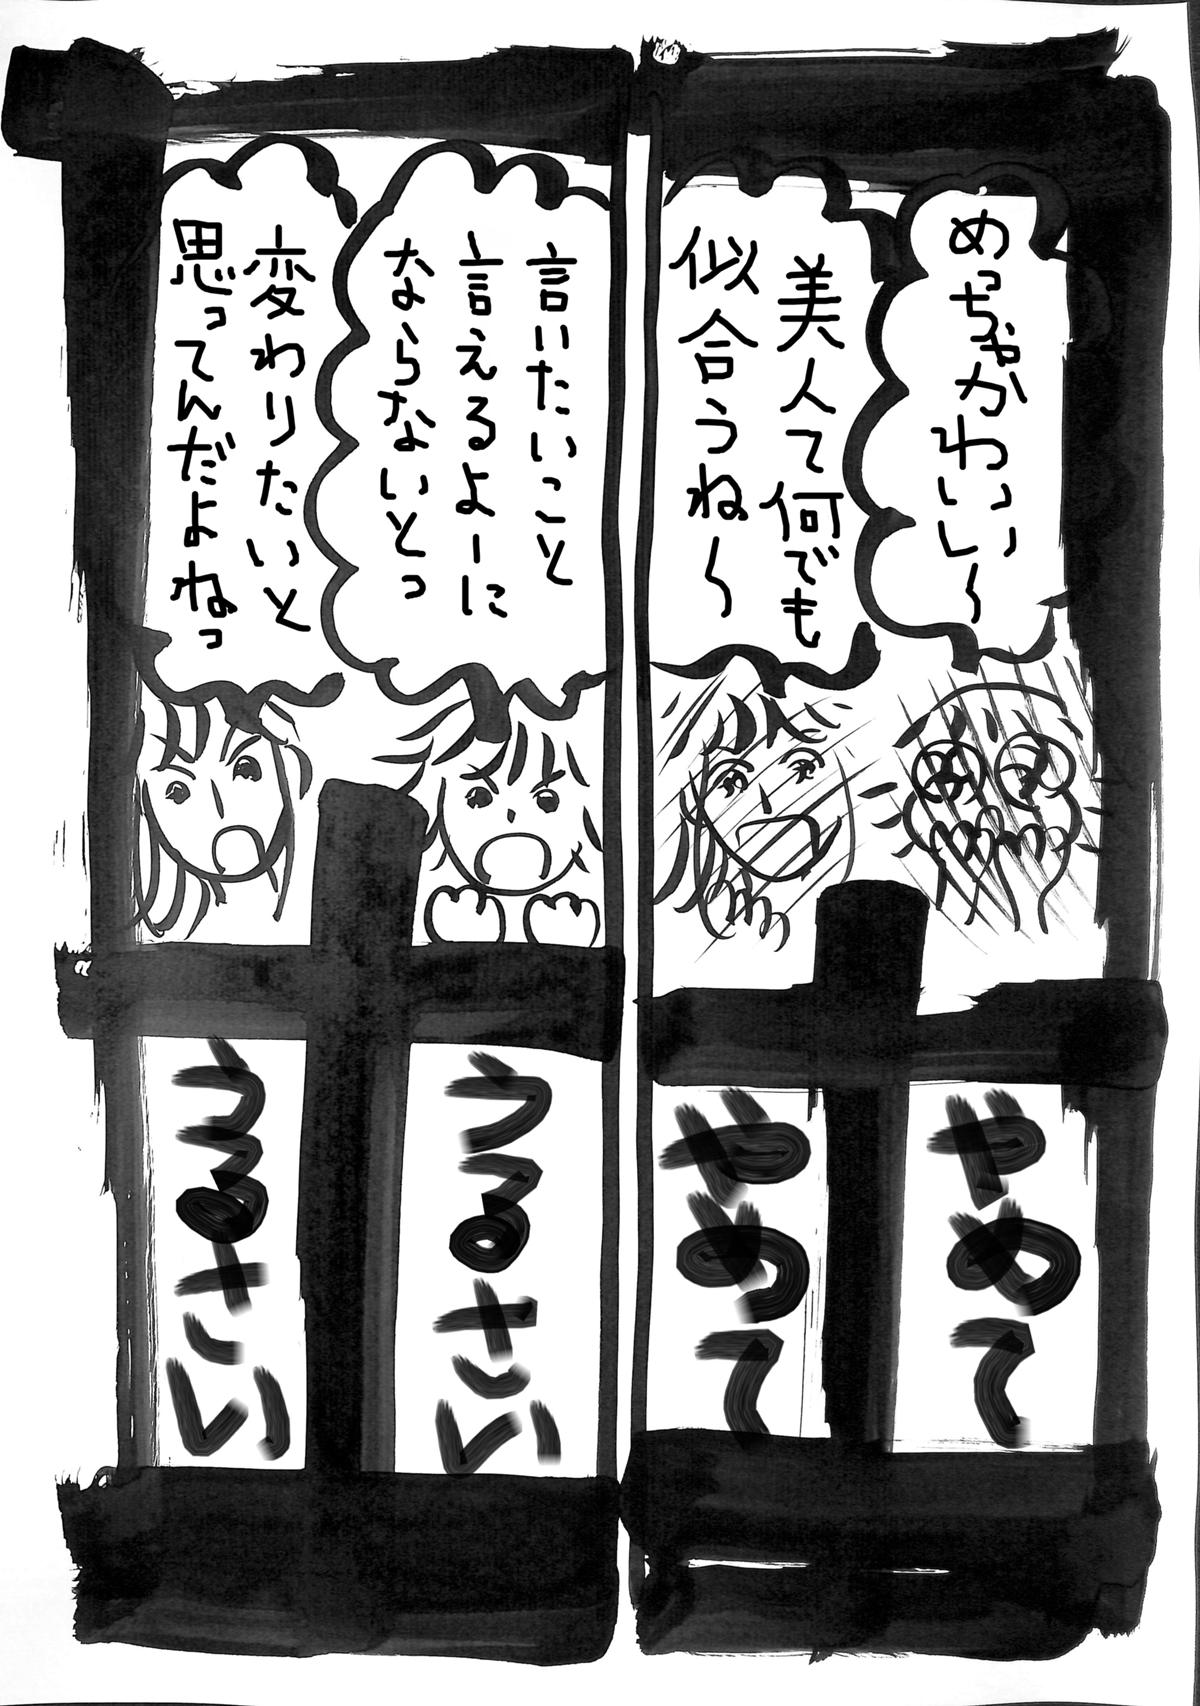 めっちゃかわいい〜
美人て何でも
似合うね〜
言いたいこと
言えるよーに
ならないとっ
変わりたいと
思ってんだよねっ
やめて
やめて
うるさい
うるさい